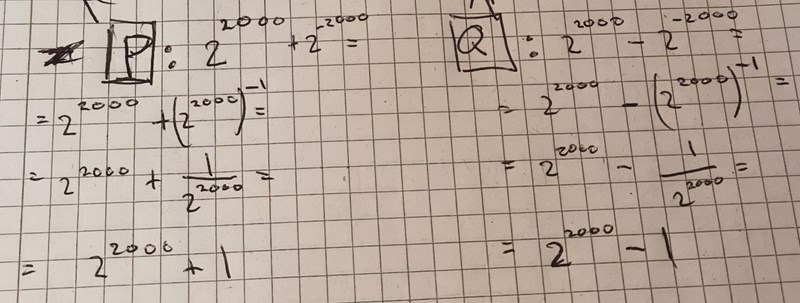 P : 2^2000 + 2^-2000 =
= 2^2000 + (2^2000)^-1 =
= 2^2000 + 1/2^2000 =
= 2^2000 + 1
Q : 2^2000 - 2^-2000 =
= 2^2000 - (2^2000)^-1 =
= 2^2000 - 1/2^2000 =
= 2^2000 - 1